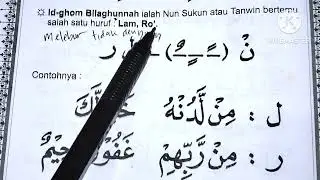 * Id-ghom Bilaghunnah ialah Nun Sukun atau Tanwin bertemu
salah satu huruf : "Lam, Ro".
melebur tidak dengan
نْ ( ـًـ ـٍـ ـٌـ ) ر
Contohnya :
ل : مِنْ لَّدُنْهُ
ر : مِنْ رَّبِّهِمْ غَفُوْرٌ رَّحِيْمٌ
KINEMASTER